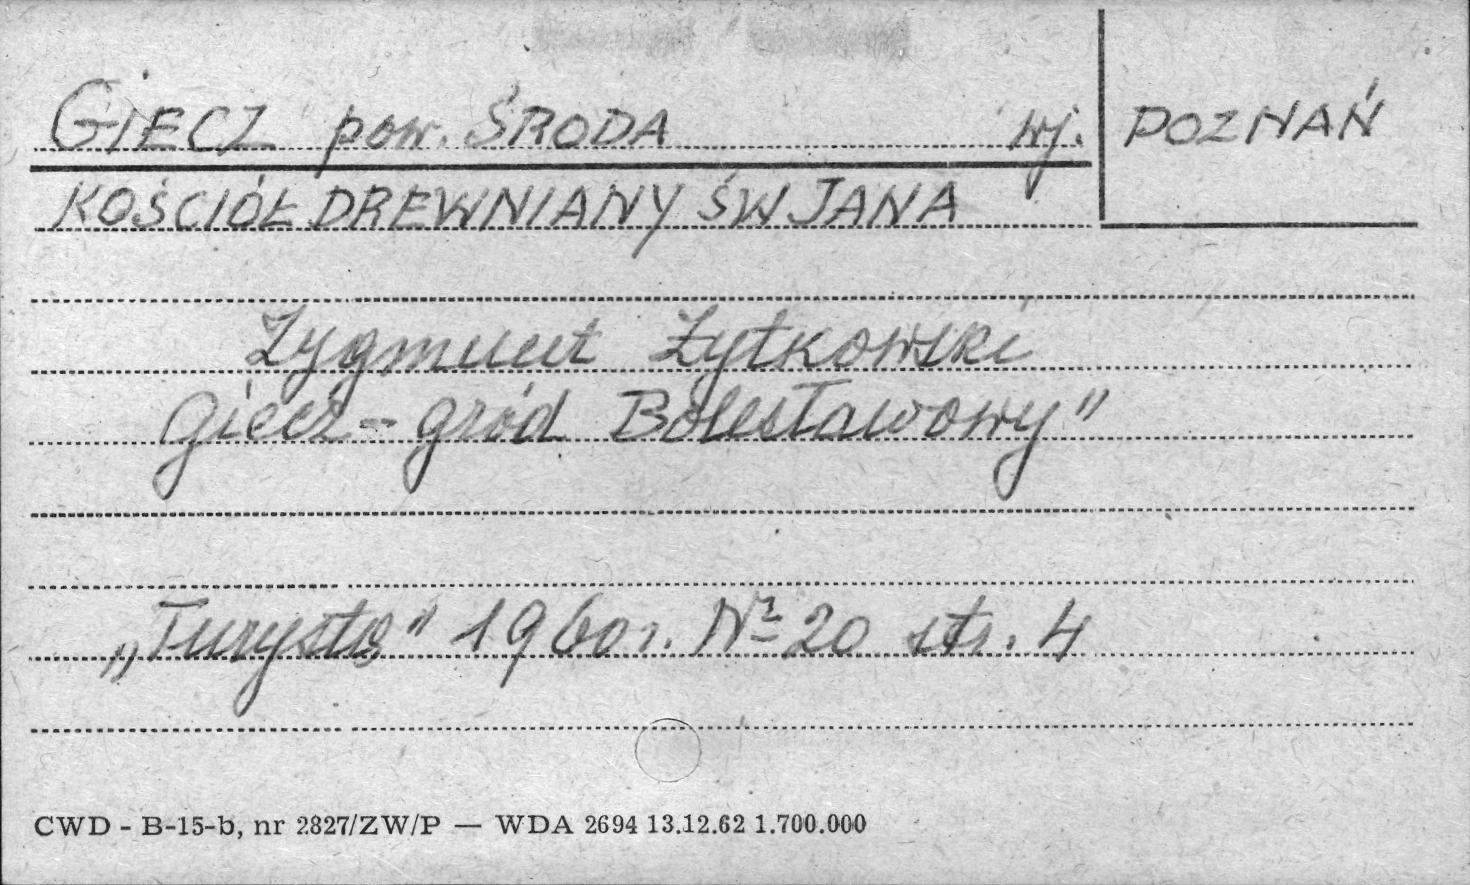 GIECZ pow. ŚRODA wj. POZNAŃ
KOŚCIÓŁ DREWNIANY ŚW JANA
Zygmunt Żytkowski
Giecz - gród Bolesławowy"
„Turysta" 1960 r. Nr 20 str. 4
CWD - B-15-b, nr 2827/ZW/P — WDA 2694 13.12.62 1.700.000